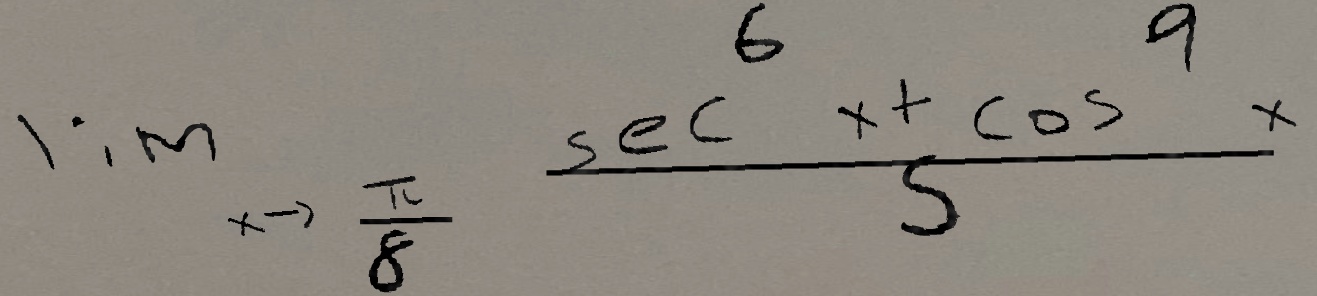 \lim_{x \to \frac{\pi}{8}} \frac{\sec^6 x + \cos^9 x}{5}